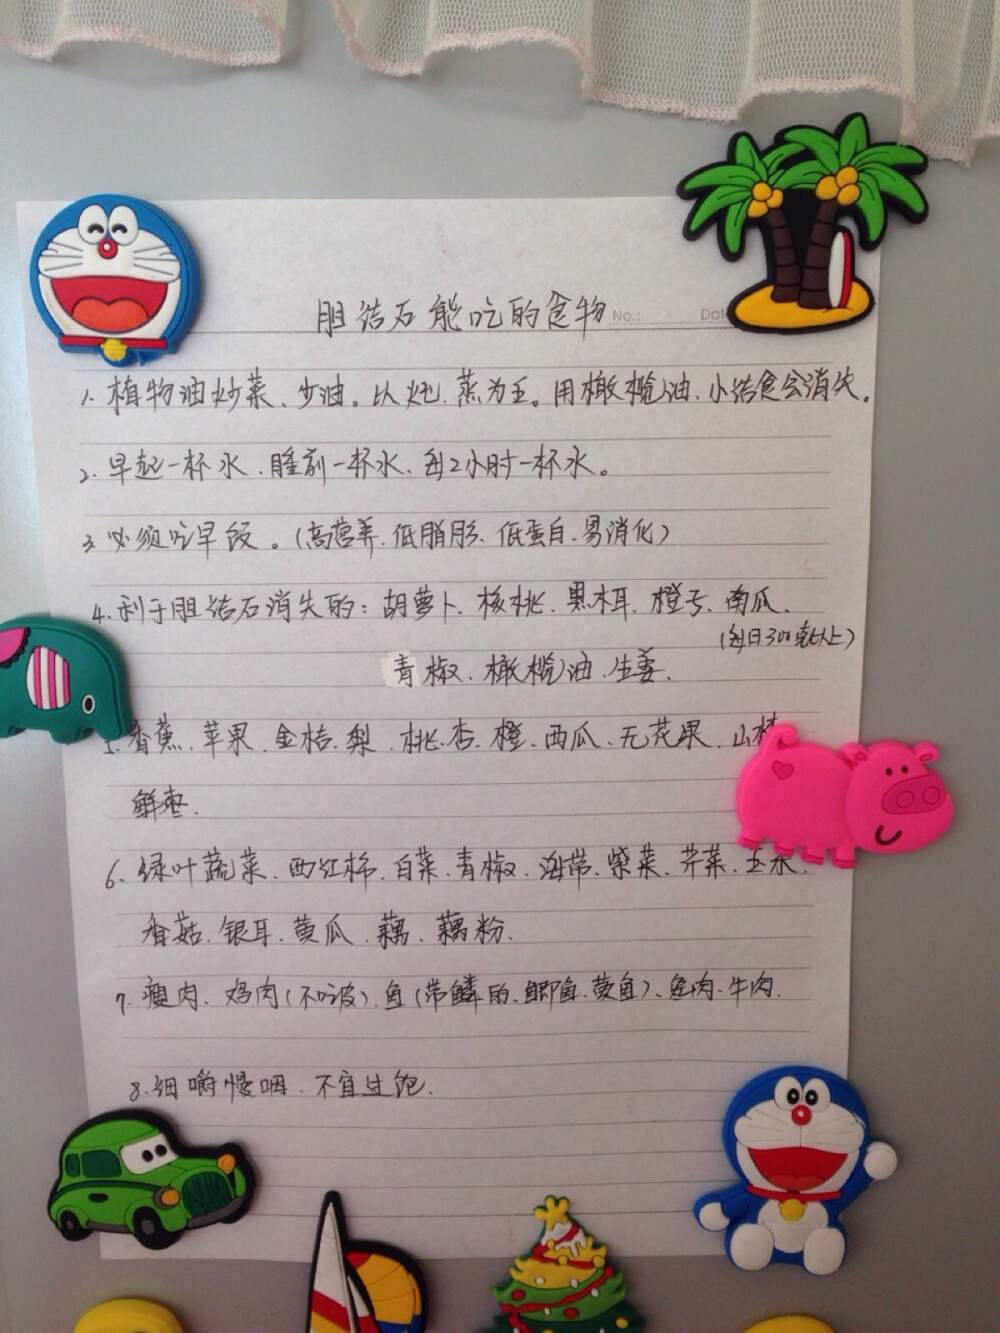 胆结石能吃的食物 No.: Dat
1. 植物油炒菜、少油。以炖、蒸为主。用橄榄油、小结食会消失。
2. 早起一杯水、睡前一杯水、每2小时一杯水。
3. 必须吃早饭。(高营养、低脂肪、低蛋白、易消化)
4. 利于胆结石消失的: 胡萝卜、核桃、黑木耳、橙子、南瓜、
(每日300克以上)
青椒、橄榄油、生姜.
5. 香蕉、苹果、金桔、梨、桃、杏、橙、西瓜、无花果、山楂
鲜枣.
6. 绿叶蔬菜、西红柿、白菜、青椒、海带、紫菜、芹菜、玉米.
香菇、银耳、黄瓜、藕、藕粉.
7. 瘦肉、鸡肉(不吃皮)、鱼(带鳞的、鲫鱼、黄鱼)、兔肉、牛肉.
8. 细嚼慢咽、不宜过饱.